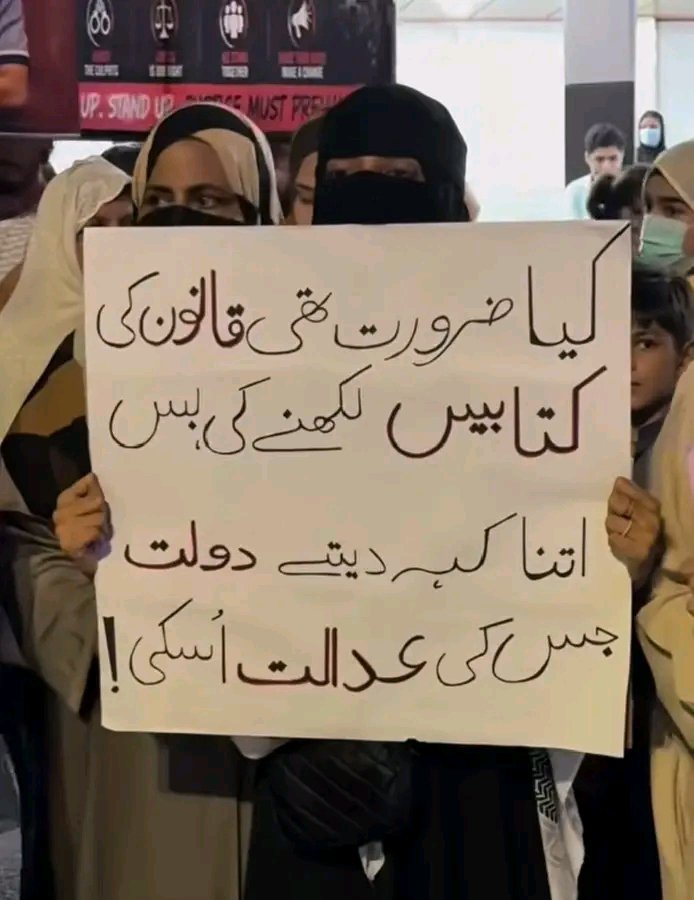 THE CULPRITS
TOGETHER
MAKE A CHANGE
UP. STAND UP. JUSTICE MUST PREVAIL
کیا ضرورت تھی قانون کی
کتابیں لکھنے کی، بس
اتنا کہہ دیتے دولت
جس کی عدالت اُسکی!